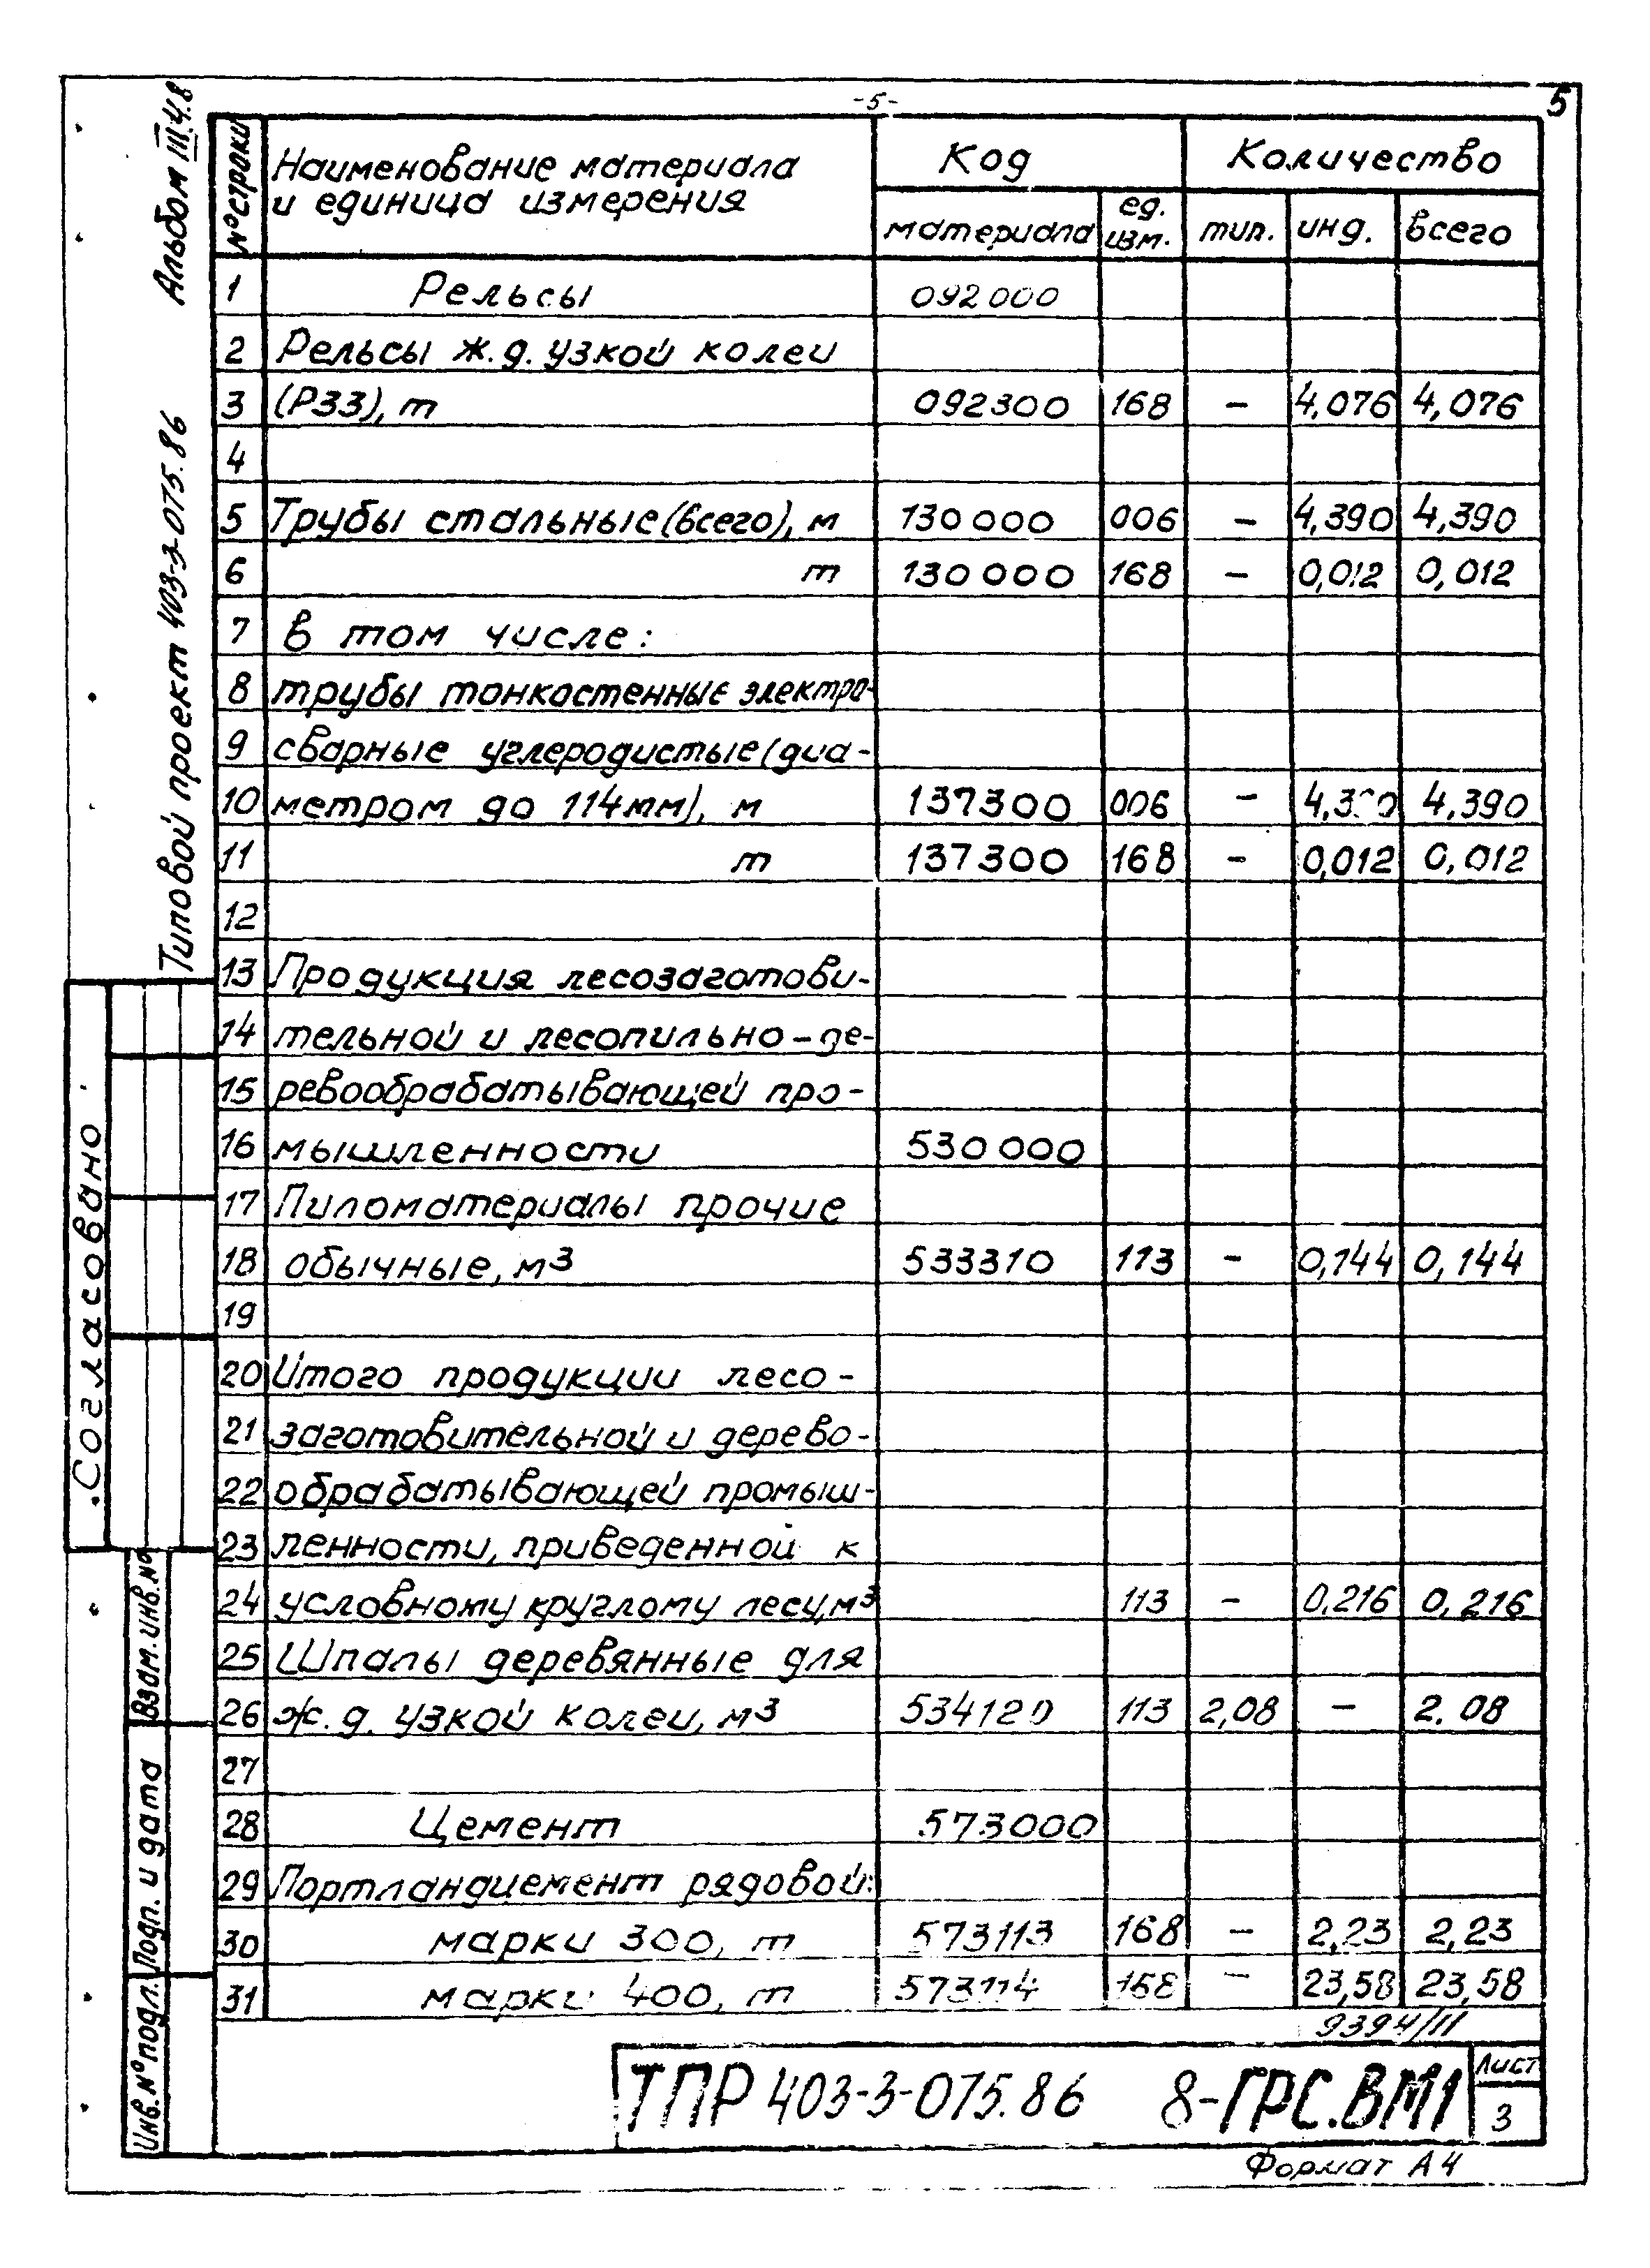 -5-
5
Альбом III.ч.8
Типовой проект 403-3-075.86
№ строки
Наименование материала
и единица измерения
Код
Количество
материала
ед. изм.
тип.
инд.
всего
1 Рельсы 092000
2 Рельсы ж.д. узкой колеи
3 (Р33), т 092300 168 – 4,076 4,076
4
5 Трубы стальные (всего), м 130000 006 – 4,390 4,390
6 т 130000 168 – 0,012 0,012
7 в том числе:
8 трубы тонкостенные электро-
9 сварные углеродистые (диа-
10 метром до 114мм), м 137300 006 – 4,390 4,390
11 т 137300 168 – 0,012 0,012
12
13 Продукция лесозаготови-
14 тельной и лесопильно-де-
15 ревообрабатывающей про-
16 мышленности 530000
17 Пиломатериалы прочие
18 обычные, м³ 533310 113 – 0,144 0,144
19
20 Итого продукции лесо-
21 заготовительной и дерево-
22 обрабатывающей промыш-
23 ленности, приведенной к
24 условному круглому лесу, м³ 113 – 0,216 0,216
25 Шпалы деревянные для
26 ж.д. узкой колеи, м³ 534120 113 2,08 – 2.08
27
28 Цемент 573000
29 Портландцемент рядовой:
30 марки 300, т 573113 168 – 2,23 2,23
31 марки 400, т 573114 168 – 23,58 23,58
9394/II
Согласовано
Взам. инв. №
Подп. и дата
Инв. № подл.
ТПР 403-3-075.86 8-ГРС.ВМ1
Лист
3
Формат А4